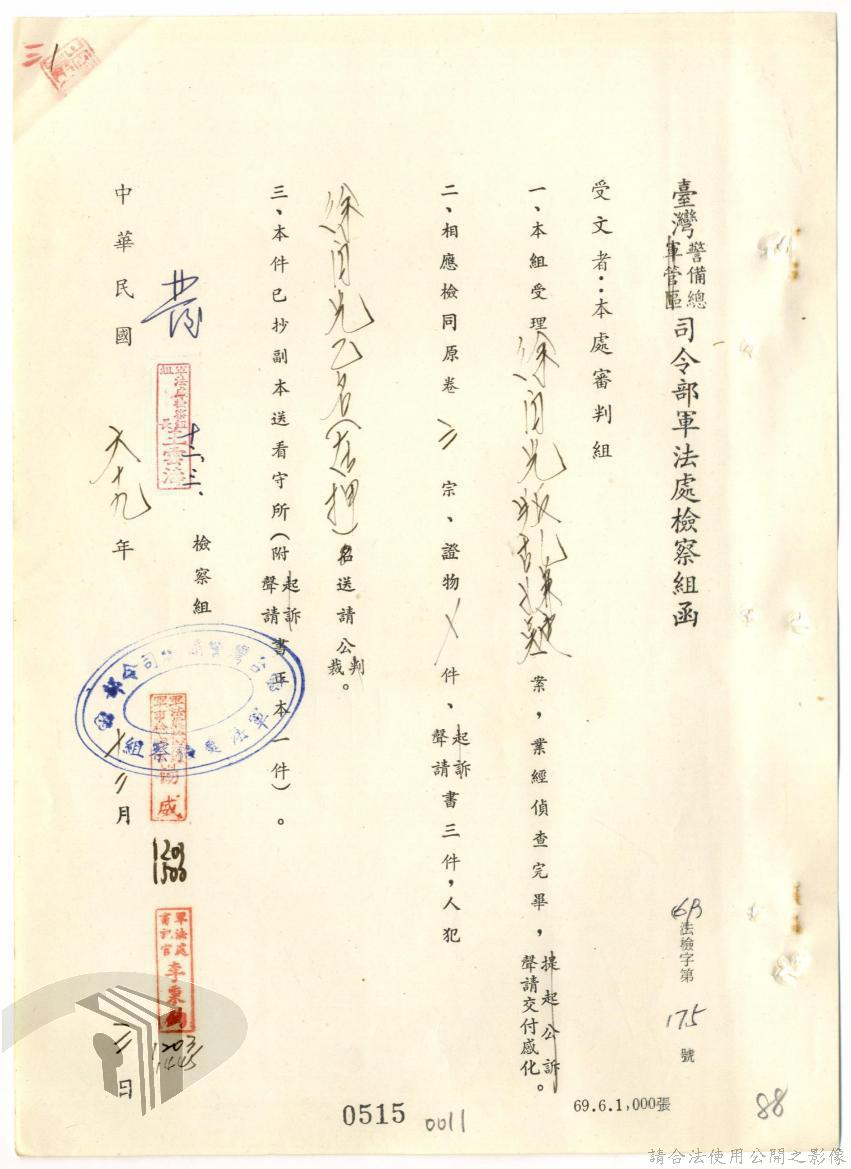 臺灣警備總軍管區司令部軍法處檢察組函
69法檢字第175號
受文者：本處審判組
一、本組受理徐 光 一案，業經偵查完畢，提起公訴聲請交付感化。
二、相應檢同原卷 宗、證物 件、起訴聲請書三件，人犯
徐 光乙名（在押）名送請公判裁。
三、本件已抄副本送看守所（附起訴聲請書正本一件）。
檢察組
中華民國六十九年十二月 日
十二、三、
軍法處檢察組組長
軍法處書記官李秉
1203
1500
1203
1445
0515
0011
69.6.1,000張
88
三1
請合法使用公開之影像